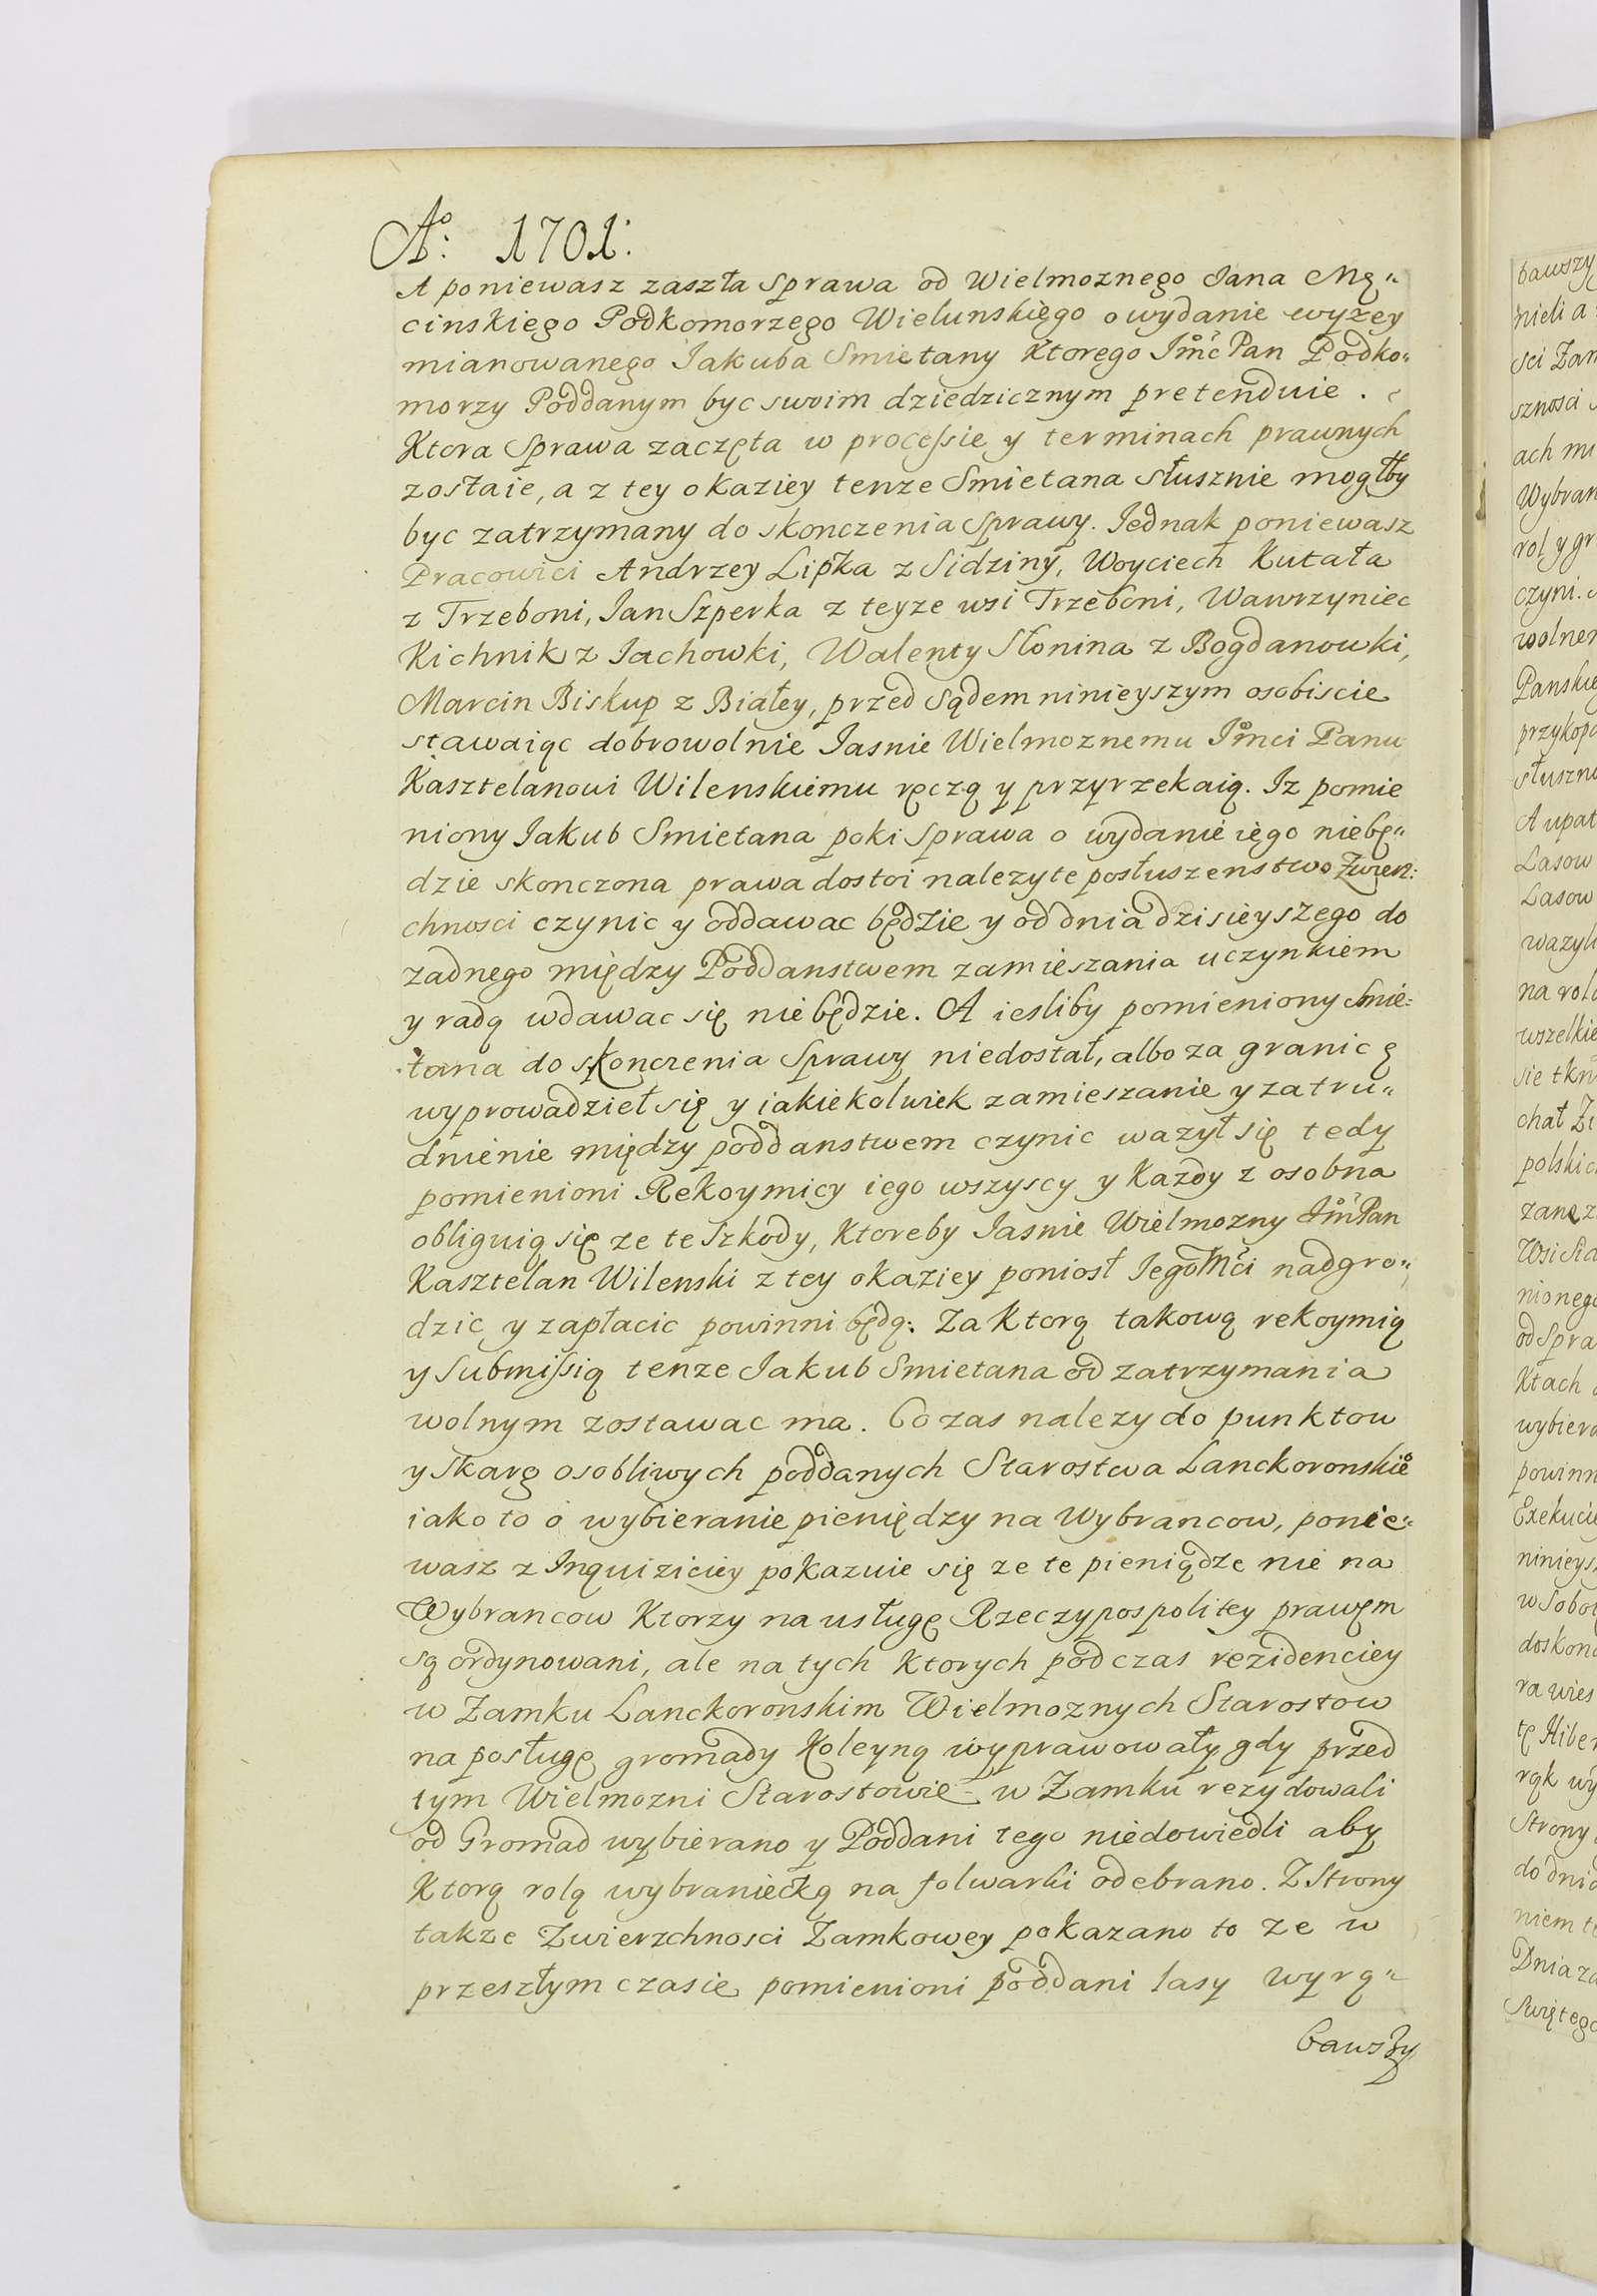 Aº: 1701:
A poniewasz zaszła Sprawa od Wielmoznego Jana Mę„
cinskiego Podkomorzego Wielunskięgo o wydanie wyzey
mianowanego Jakuba Smietany Ktorego Jm̊ć Pan Podko„
morzy Poddanym byc swoim dziedzicznym pretenduie.
Ktora Sprawa zaczęta w processie y terminach prawnych
zostaie, a z tey okaziey tenze Smietana słusznie mogłby
byc zatrzymany do skonczenia Sprawy. Jednak poniewasz
Pracowici Andrzey Lipka z Sidziny, Woyciech Kutała
z Trzeboni, Jan Szperka z teyze wsi Trzeboni, Wawrzyniec
Kichnik z Jachowki, Walenty Słonina z Bogdanowki,
Marcin Biskup z Białey, przed Sądem ninieyszym osobiscie
stawaiąc dobrowolnie Jasnie Wielmoznemu Jm̊ci Panu
Kasztelanowi Wilenskiemu ręczą y przyrzekaią. Iz pomie
niony Jakub Smietana poki Sprawa o wydanie iego niebę„
dzie skonczona prawa dostoi nalezyte posłuszenstwo Zwierz:
chnosci czynic y oddawac będzie y od dnia dzisieyszego do
zadnego między Poddanstwem zamieszania uczynkiem
y radą wdawac się niebędzie. A iesliby pomieniony Smie:
tana do skonczenia Sprawy niedostał, albo za granicę
wyprowadzieł się y iakiekolwiek zamieszanie y zatru„
dnienie między poddanstwem czynic wazył się tedy
pomienioni Rekoymicy iego wszyscy y Kazdy z osobna
obliguią się ze te Szkody, Ktoreby Jasnie Wielmozny Jm̊ Pan
Kasztelan Wilenski z tey okaziey poniosł Jegomći nadgro„
dzic y zapłacic powinni będą: Za Ktorą takową rekoymią
y Submissią tenze Jakub Smietana od zatrzymania
wolnym zostawac ma. Co zas nalezy do punktow
y Skarg osobliwych poddanych Starostwa Lanckoronskie̊
iako to o wybieranie pieniędzy na Wybrancow, ponie„
wasz z Inquiziciey pokazuie się ze te pieniądze nie na
Wybrancow Ktorzy na usługę Rzeczypospolitey prawem
są ordynowani, ale na tych Ktorych podczas rezidenciey
w Zamku Lanckoronskim Wielmoznych Starostow
na posługę gromady Koleyną wyprawowały gdy przed
tym Wielmozni Starostowie w Zamku rezydowali
od Gromad wybierano y Poddani tego niedowiedli aby
Ktorą rolą wybraniecką na folwarki odebrano. Z Strony
takze Zwierzchnosci Zamkowey pokazano to ze w
przeszłym czasie pomienioni poddani lasy wyrą„
bawszy